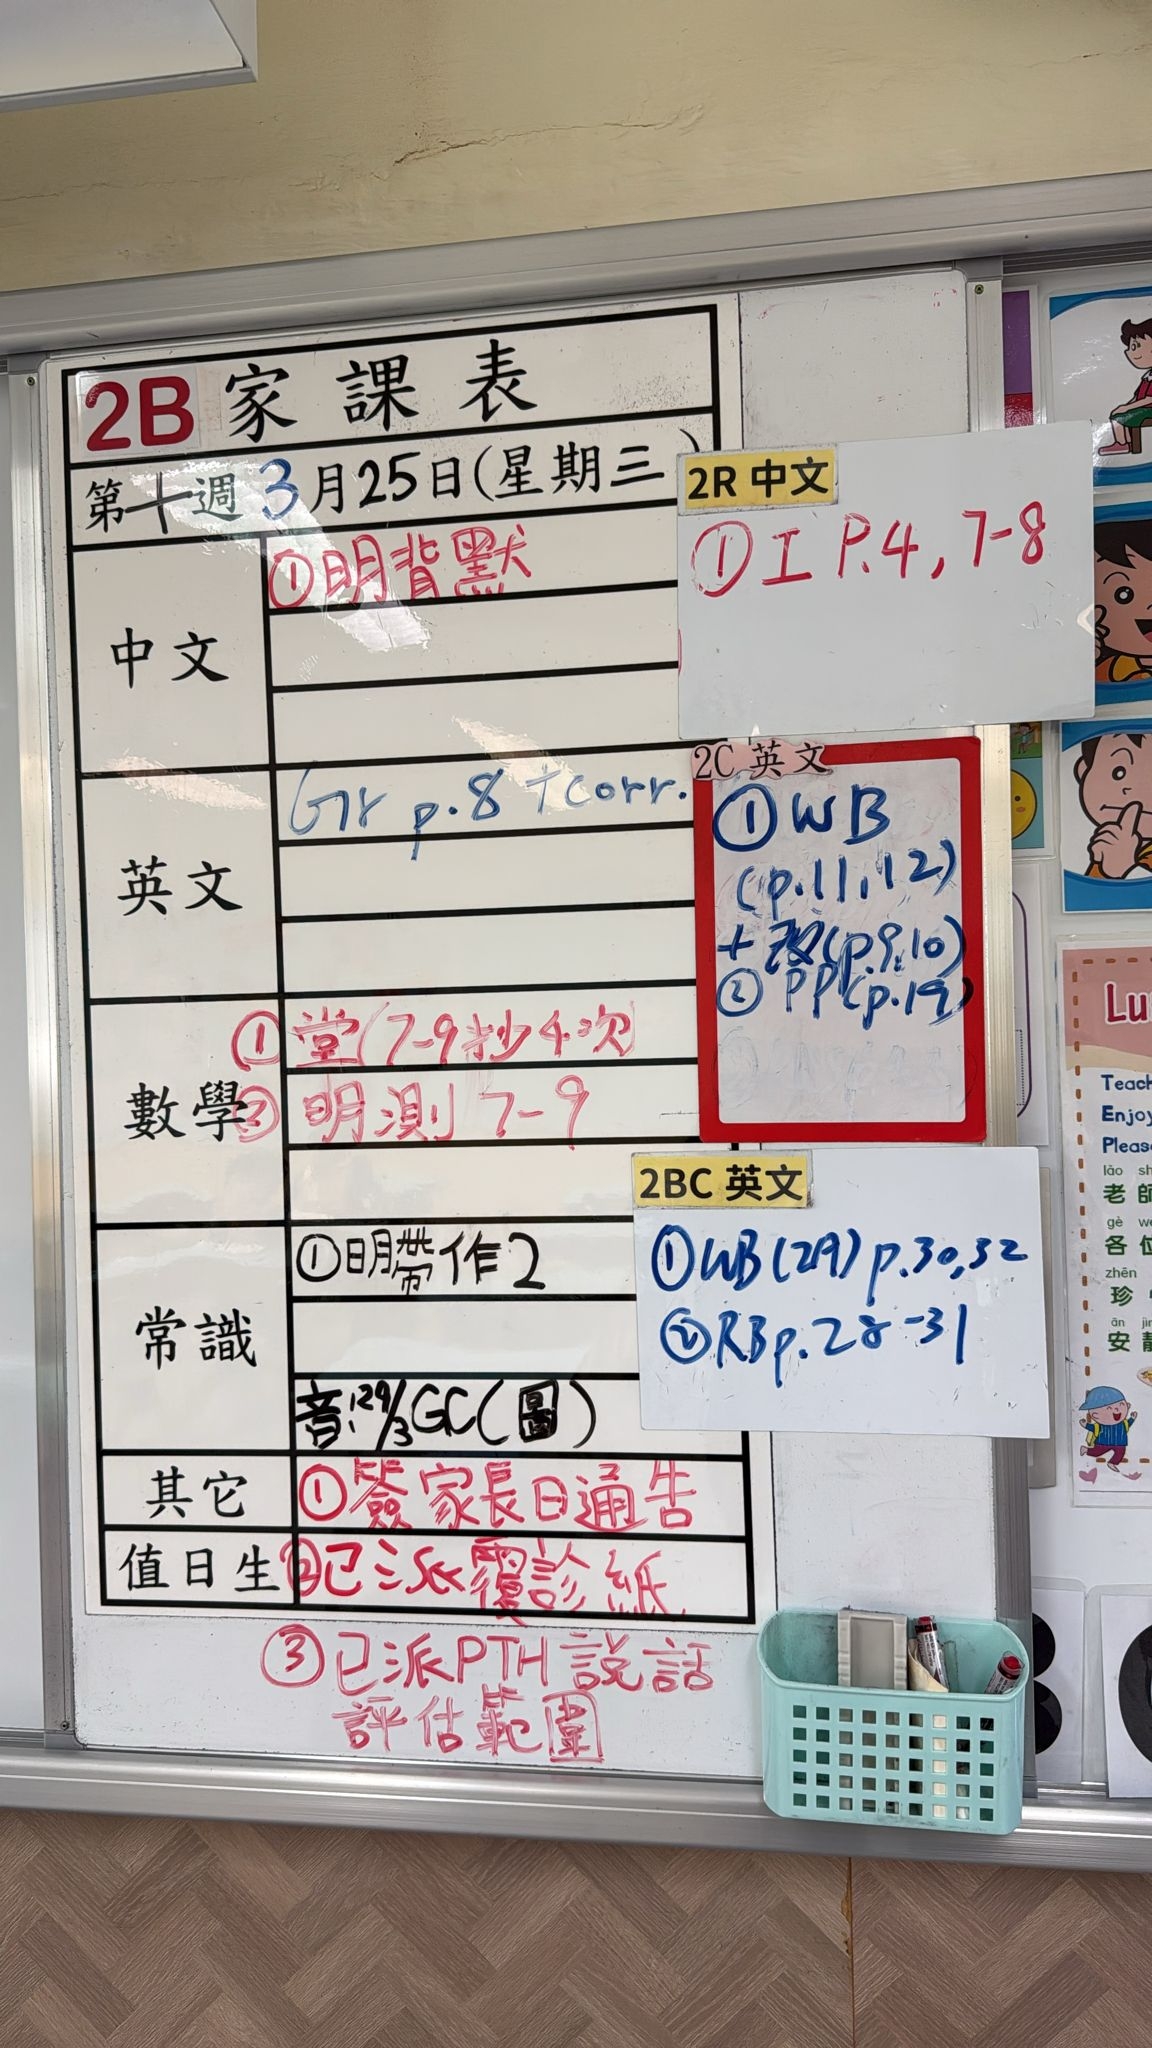 2B 家課表
第十週 3月25日(星期三)
中文
①明背默
英文
Gr p.8 + corr.
數學
①堂(7-9抄4次)
②明測 7-9
常識
①明帶作2
音:29/3 GC(圖)
其它
①簽家長日通告
值日生
②已派覆診紙
③已派PTH說話
評估範圍
2R 中文
①工 P.4, 7-8
2C 英文
①WB
(p.11,12)
+ 改(p.9,10)
② PP(p.19)
2BC 英文
①WB(2A) p.30,32
②RB p.28-31
Lu
Teach
Enjoy
Please
lǎo sh
老師
gè we
各位
zhēn
珍
ān jìn
安靜